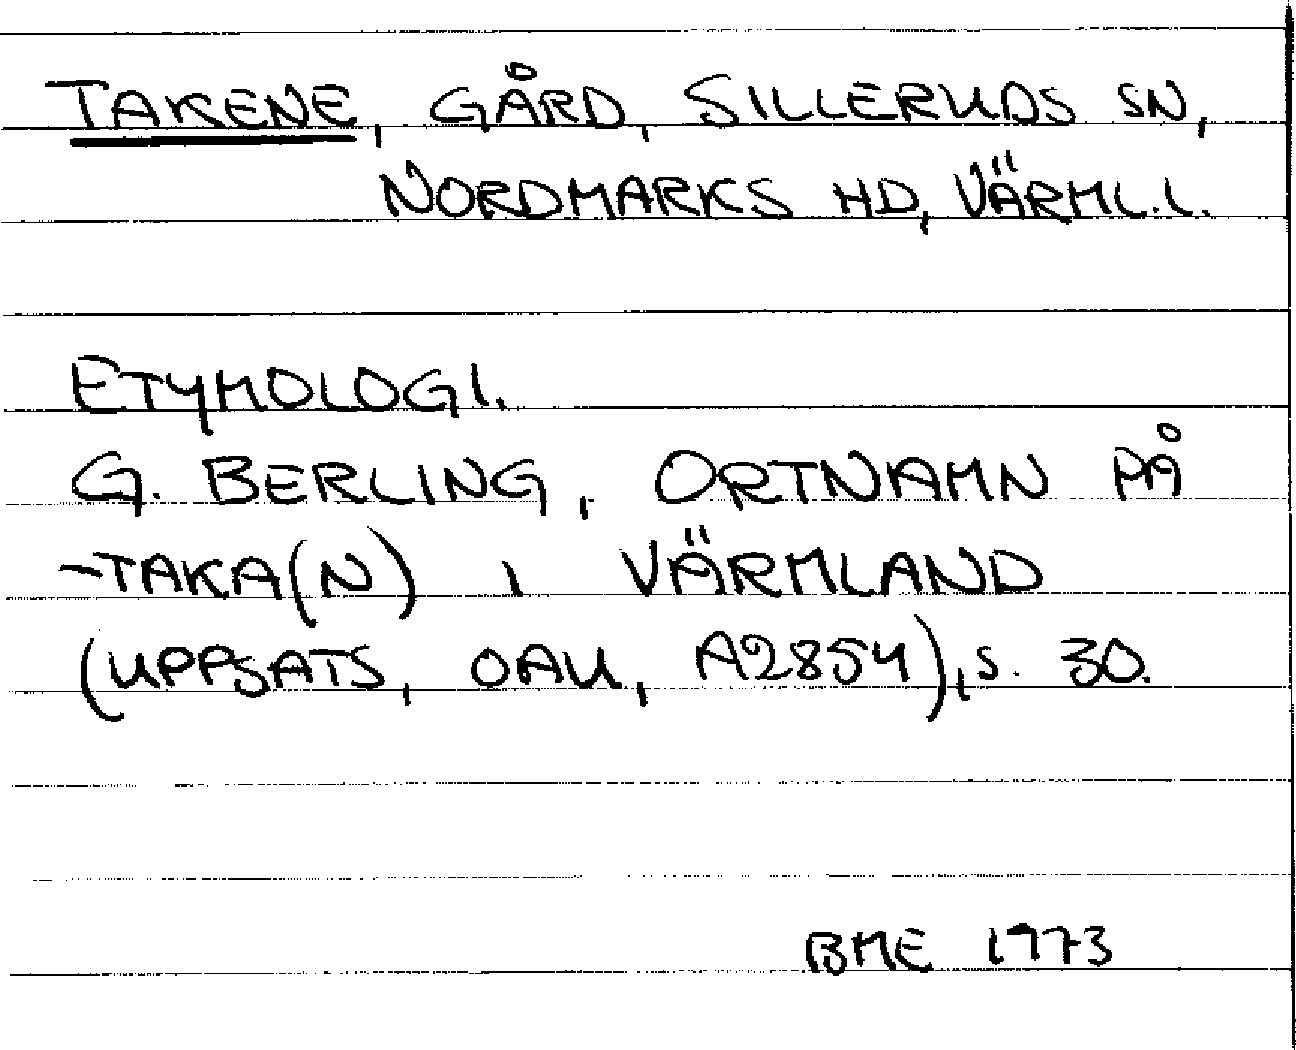 TAKENE, GÅRD, SILLERUDS SN,
NORDMARKS HD, VÄRML.L.
ETYMOLOGI.
G. BERLING, ORTNAMN PÅ
-TAKA(N) I VÄRMLAND
(UPPSATS, OAU, A2854), S. 30.
BME 1973